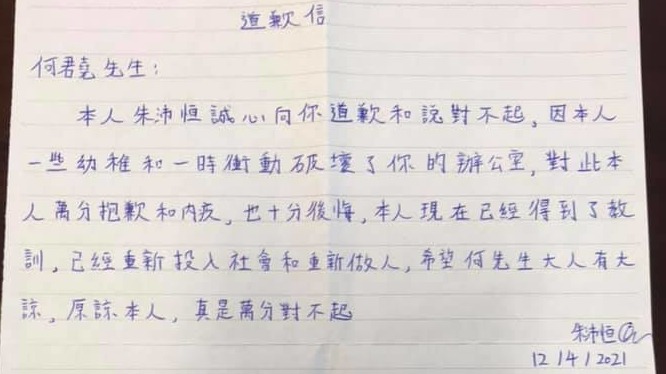 道歉信
何君堯先生：
本人朱沛恒誠心向你道歉和說對不起，因本人
一些幼稚和一時衝動破壞了你的辦公室，對此本
人萬分抱歉和內疚，也十分後悔，本人現在已經得到了教
訓，已經重新投入社會和重新做人，希望何先生大人有大
諒，原諒本人，真是萬分對不起
朱沛恒
12/4/2021